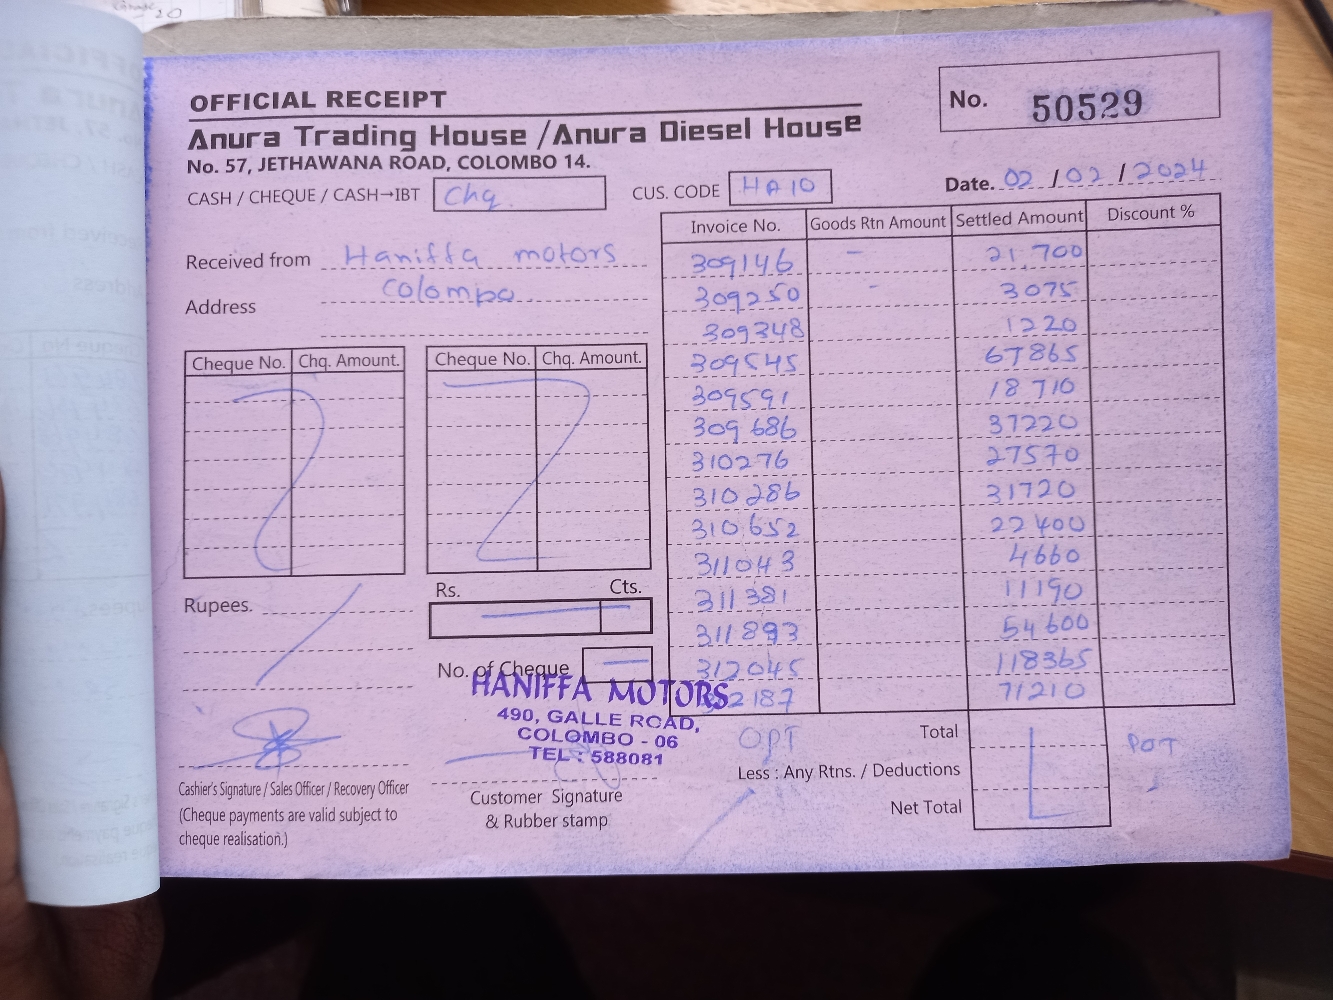 OFFICIAL RECEIPT
No. 50529
Anura Trading House / Anura Diesel House
No. 57, JETHAWANA ROAD, COLOMBO 14.
CASH / CHEQUE / CASH→IBT Chq. CUS. CODE HA10 Date. 02 / 02 / 2024
Received from Haniffa motors
Address Colompo
Cheque No. Chq. Amount. Cheque No. Chq. Amount.
Invoice No. Goods Rtn Amount Settled Amount Discount %
309146 - 21,700
309250 - 3075
309348 1220
309545 67865
309591 18710
309686 37220
310276 27570
310286 31720
310652 22400
311043 4660
311381 11190
311893 54600
312045 118365
312187 71210
Rupees. Rs. Cts.
No. of Cheque
HANIFFA MOTORS
490, GALLE ROAD,
COLOMBO - 06
TEL : 588081
Total
Less : Any Rtns. / Deductions
Net Total
Cashier's Signature / Sales Officer / Recovery Officer
(Cheque payments are valid subject to
cheque realisation.)
Customer Signature
& Rubber stamp